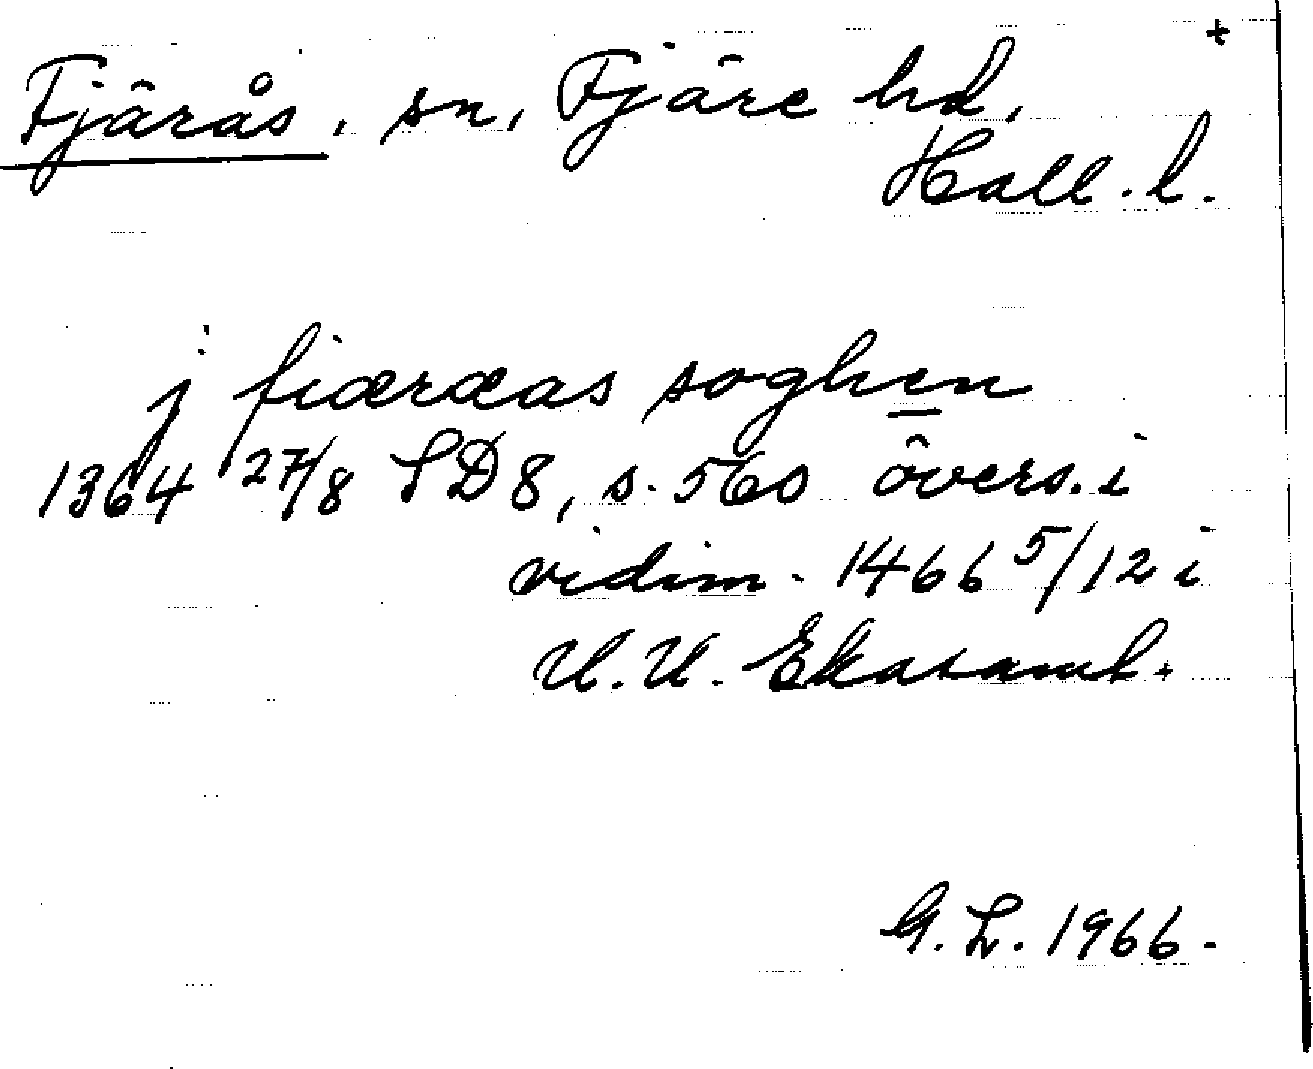 +
Fjärås, sn, Fjäre hd,
Hall. l.
j fiæræas soghen
1364 27/8 SD 8, s. 560 övers. i
vidim. 1466 5/12 i
U.U. Ekasaml.
G. L. 1966.